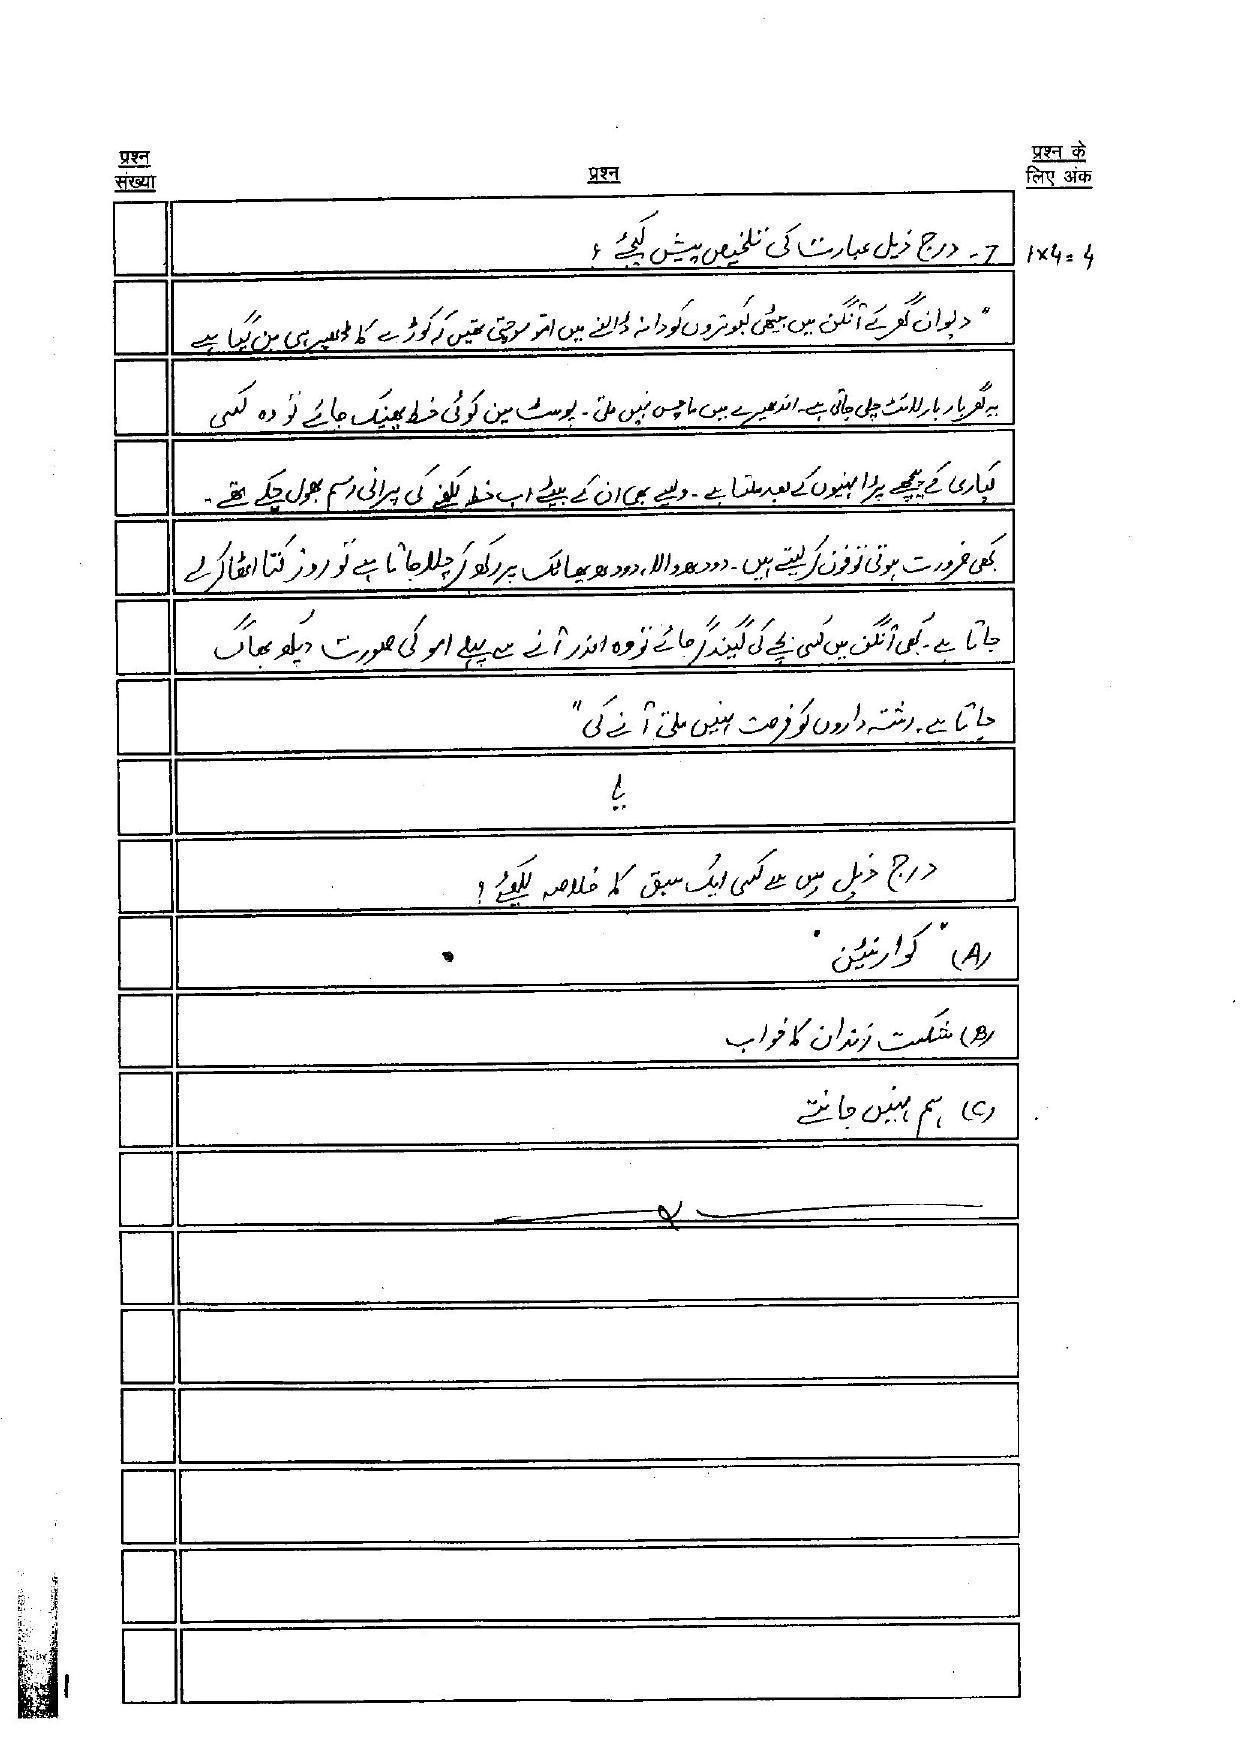 प्रश्न संख्या
प्रश्न
प्रश्न के लिए अंक
7- درج ذیل عبارت کی تلخیص پیش کیجئے؟
1x4=4
"دیوان گھر کے آنگن میں بیٹھی کبوتروں کو دانہ ڈالنے میں امّو سوچتی تھیں کہ کوڑے کا ڈھیر ہی بن گیا ہے
یہ گھر بار بار لائٹ چلی جاتی ہے۔ اندھیرے میں ماچس نہیں ملتی۔ پوسٹ مین کوئی خط پھینک جائے تو وہ کسی
کیاری کے پیچھے پڑا مہینوں کے بعد ملتا ہے۔ ویسے بھی ان کے بیٹے اب خط لکھنے کی پرانی رسم بھول چکے تھے۔
کبھی ضرورت ہوتی تو فون کر لیتے ہیں۔ دودھ والا، دودھ پھاٹک پر رکھ کر چلا جاتا ہے تو روز کتا اٹھا کر لے
جاتا ہے۔ کبھی آنگن میں کسی بچے کی گیند گر جائے تو وہ اندر آنے سے پہلے امو کی صورت دیکھ بھاگ
جاتا ہے۔ رشتہ داروں کو فرصت نہیں ملتی آنے کی"
یا
درج ذیل میں سے کسی ایک سبق کا خلاصہ لکھئے؟
(A) "کوارنٹین"
(B) شکست زنداں کا خواب
(C) ہم نہیں جانتے